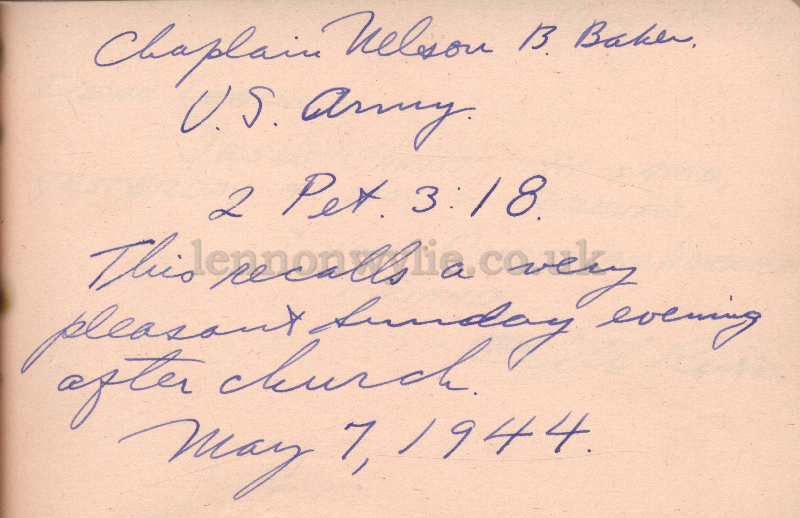 Chaplain Nelson B. Baker.
U.S. Army.
2 Pet. 3:18.
This recalls a very
lennonwylie.co.uk
pleasant Sunday evening
after church.
May 7, 1944.